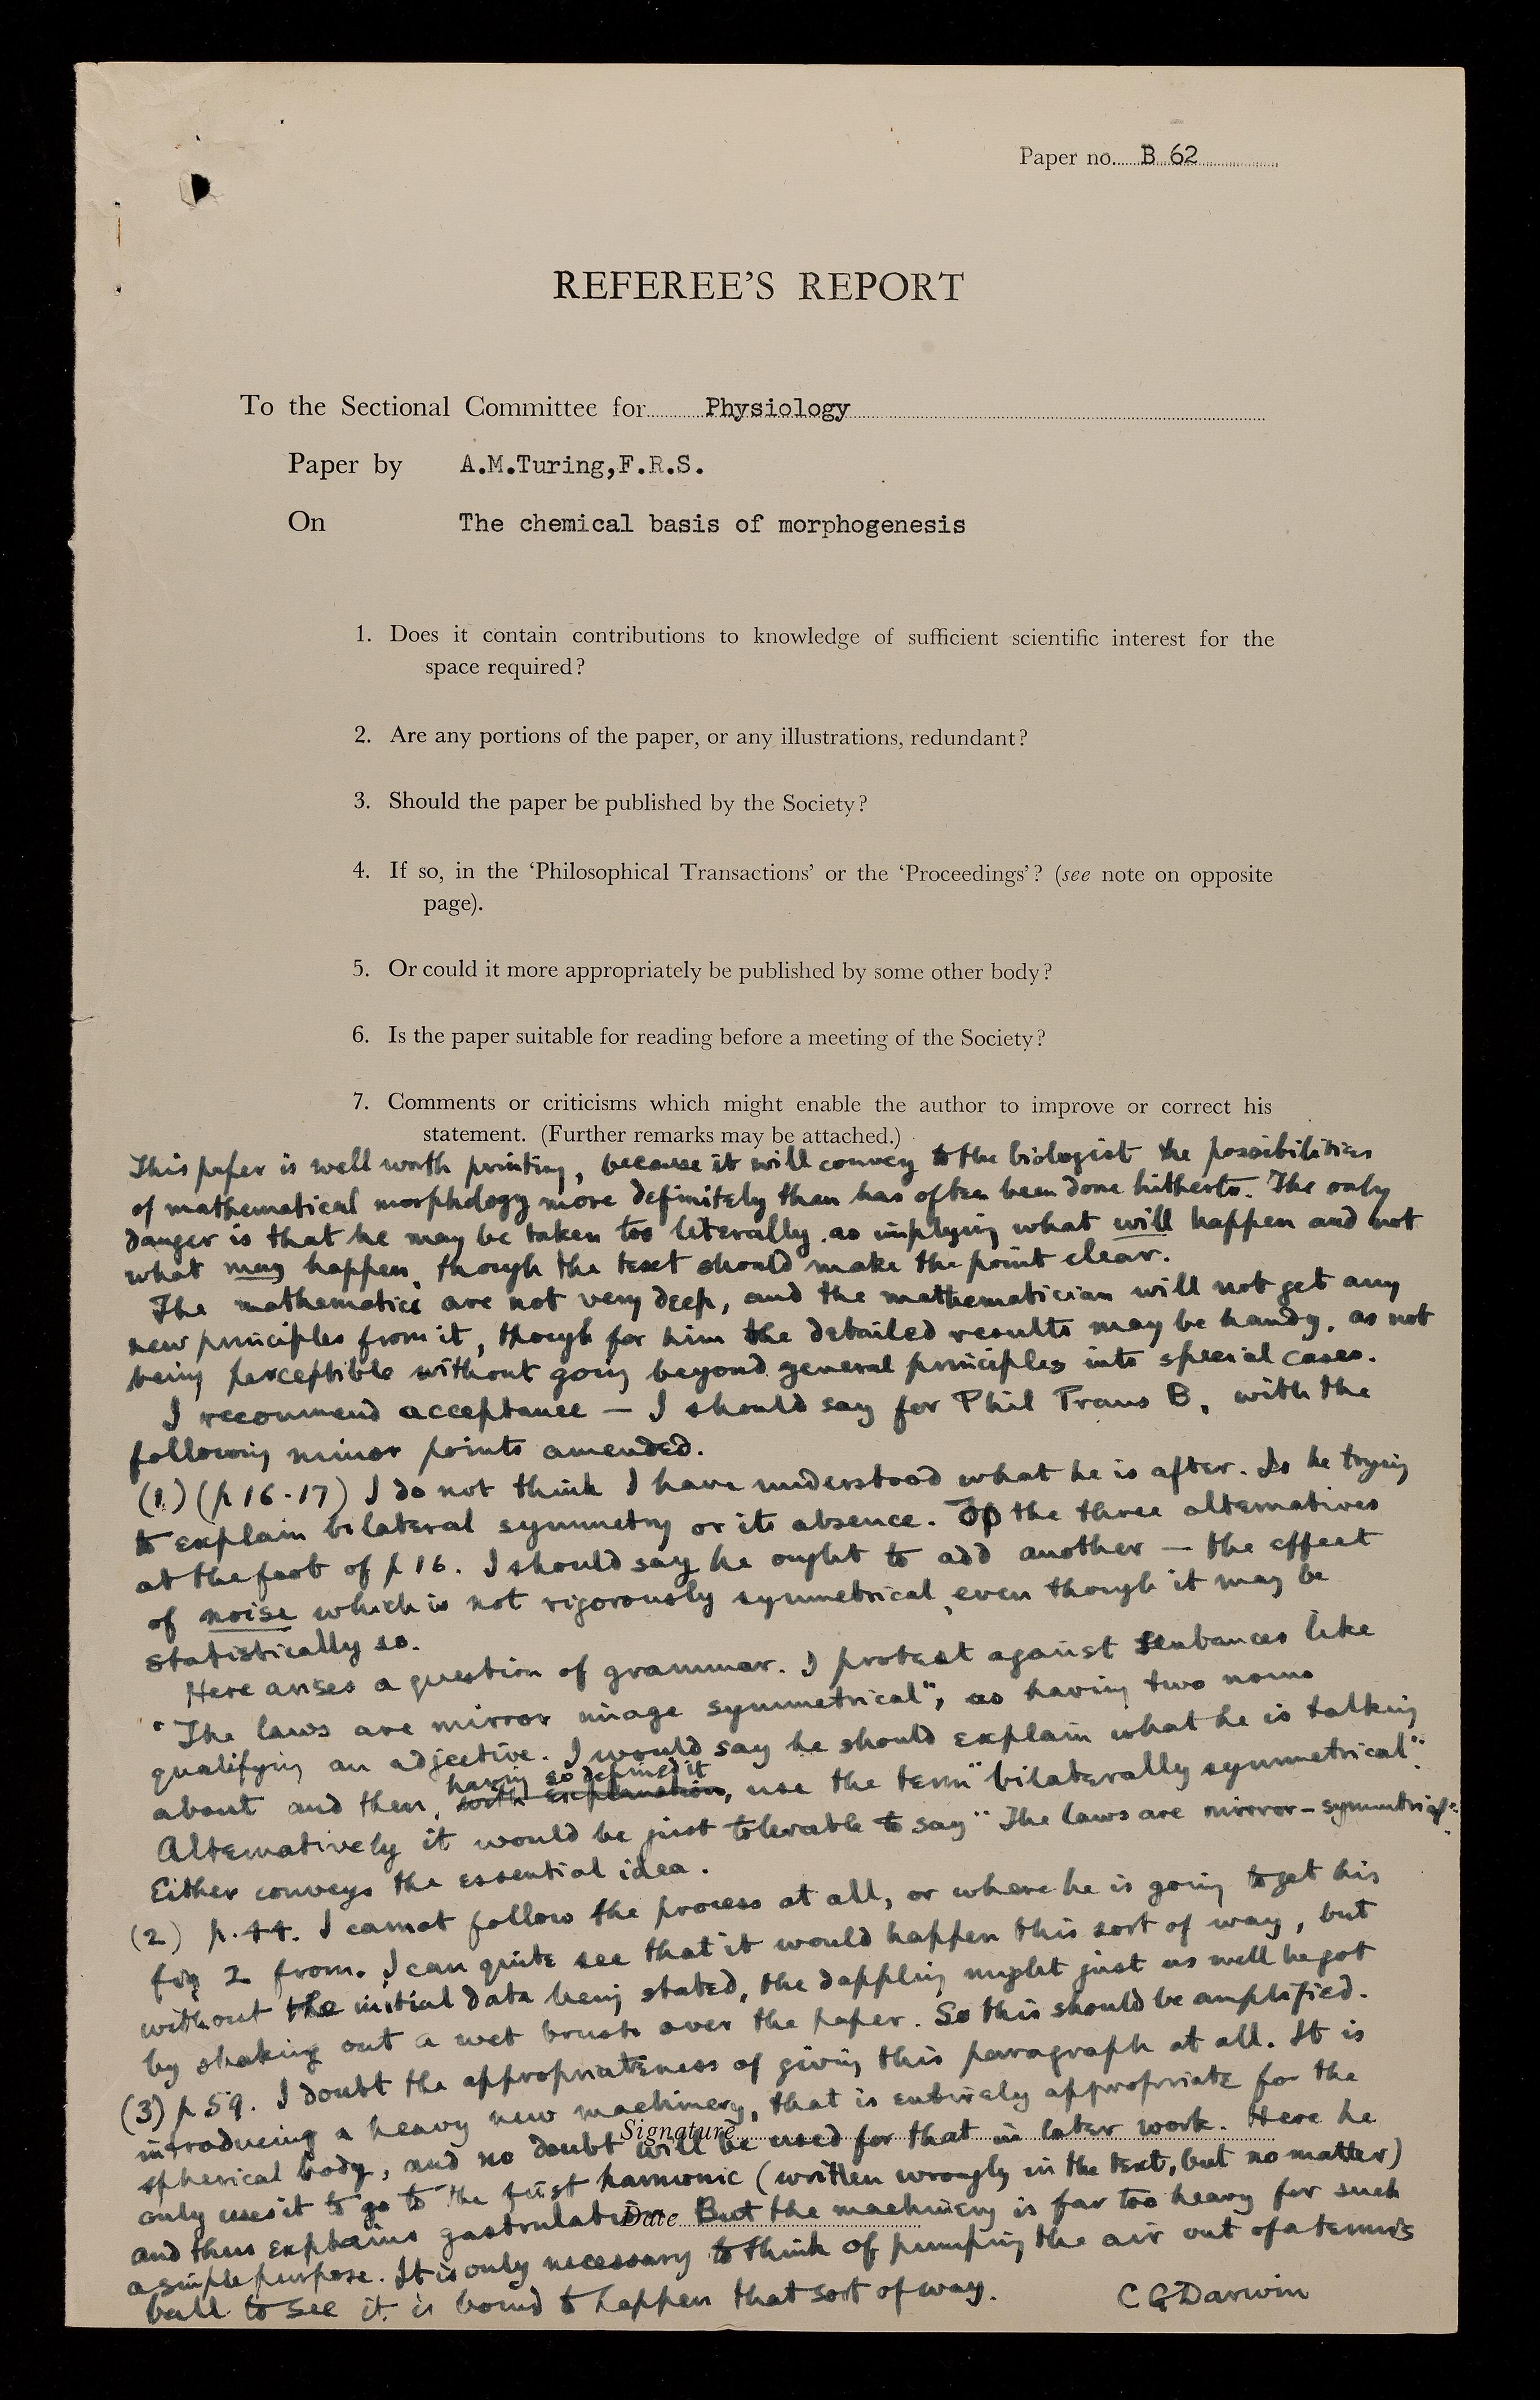 Paper no. B 62
REFEREE'S REPORT
To the Sectional Committee for Physiology
Paper by A.M.Turing,F.R.S.
On The chemical basis of morphogenesis
1. Does it contain contributions to knowledge of sufficient scientific interest for the
space required?
2. Are any portions of the paper, or any illustrations, redundant?
3. Should the paper be published by the Society?
4. If so, in the 'Philosophical Transactions' or the 'Proceedings'? (see note on opposite
page).
5. Or could it more appropriately be published by some other body?
6. Is the paper suitable for reading before a meeting of the Society?
7. Comments or criticisms which might enable the author to improve or correct his
statement. (Further remarks may be attached.)
This paper is well worth printing, because it will convey to the biologist the possibilities
of mathematical morphology more definitely than has often been done hitherto. The only
danger is that he may be taken too literally, as implying what will happen and not
what may happen, though the text should make the point clear.
The mathematics are not very deep, and the mathematician will not get any
new principles from it, though for him the detailed results may be handy, as not
being perceptible without going beyond general principles into special cases.
I recommend acceptance — I should say for Phil Trans B, with the
following minor points amended.
(1) (p 16-17) I do not think I have understood what he is after. Is he trying
to explain bilateral symmetry or its absence. Of the three alternatives
at the foot of p 16. I should say he ought to add another — the effect
of noise which is not rigorously symmetrical, even though it may be
statistically so.
Here arises a question of grammar. I protest against sentances like
"The laws are mirror image symmetrical", as having two nouns
qualifying an adjective. I would say he should explain what he is talking
about and then, having so defined it, use the term "bilaterally symmetrical".
Alternatively it would be just tolerable to say "The laws are mirror-symmetrical".
Either conveys the essential idea.
(2) p. 44. I cannot follow the process at all, or where he is going to get his
fig 2 from. I can quite see that it would happen this sort of way, but
without the initial data being stated, the dappling might just as well be got
by shaking out a wet brush over the paper. So this should be amplified.
(3) p 59. I doubt the appropriateness of giving this paragraph at all. It is
introducing a heavy new machinery, that is entirely appropriate for the
Signature
spherical body, and no doubt will be used for that in later work. Here he
only uses it to go to the first harmonic (written wrongly in the text, but no matter)
Date
and thus explains gastrulation. But the machinery is far too heavy for such
a simple purpose. It is only necessary to think of pumping the air out of a tennis
ball to see it is bound to happen that sort of way.
C G Darwin